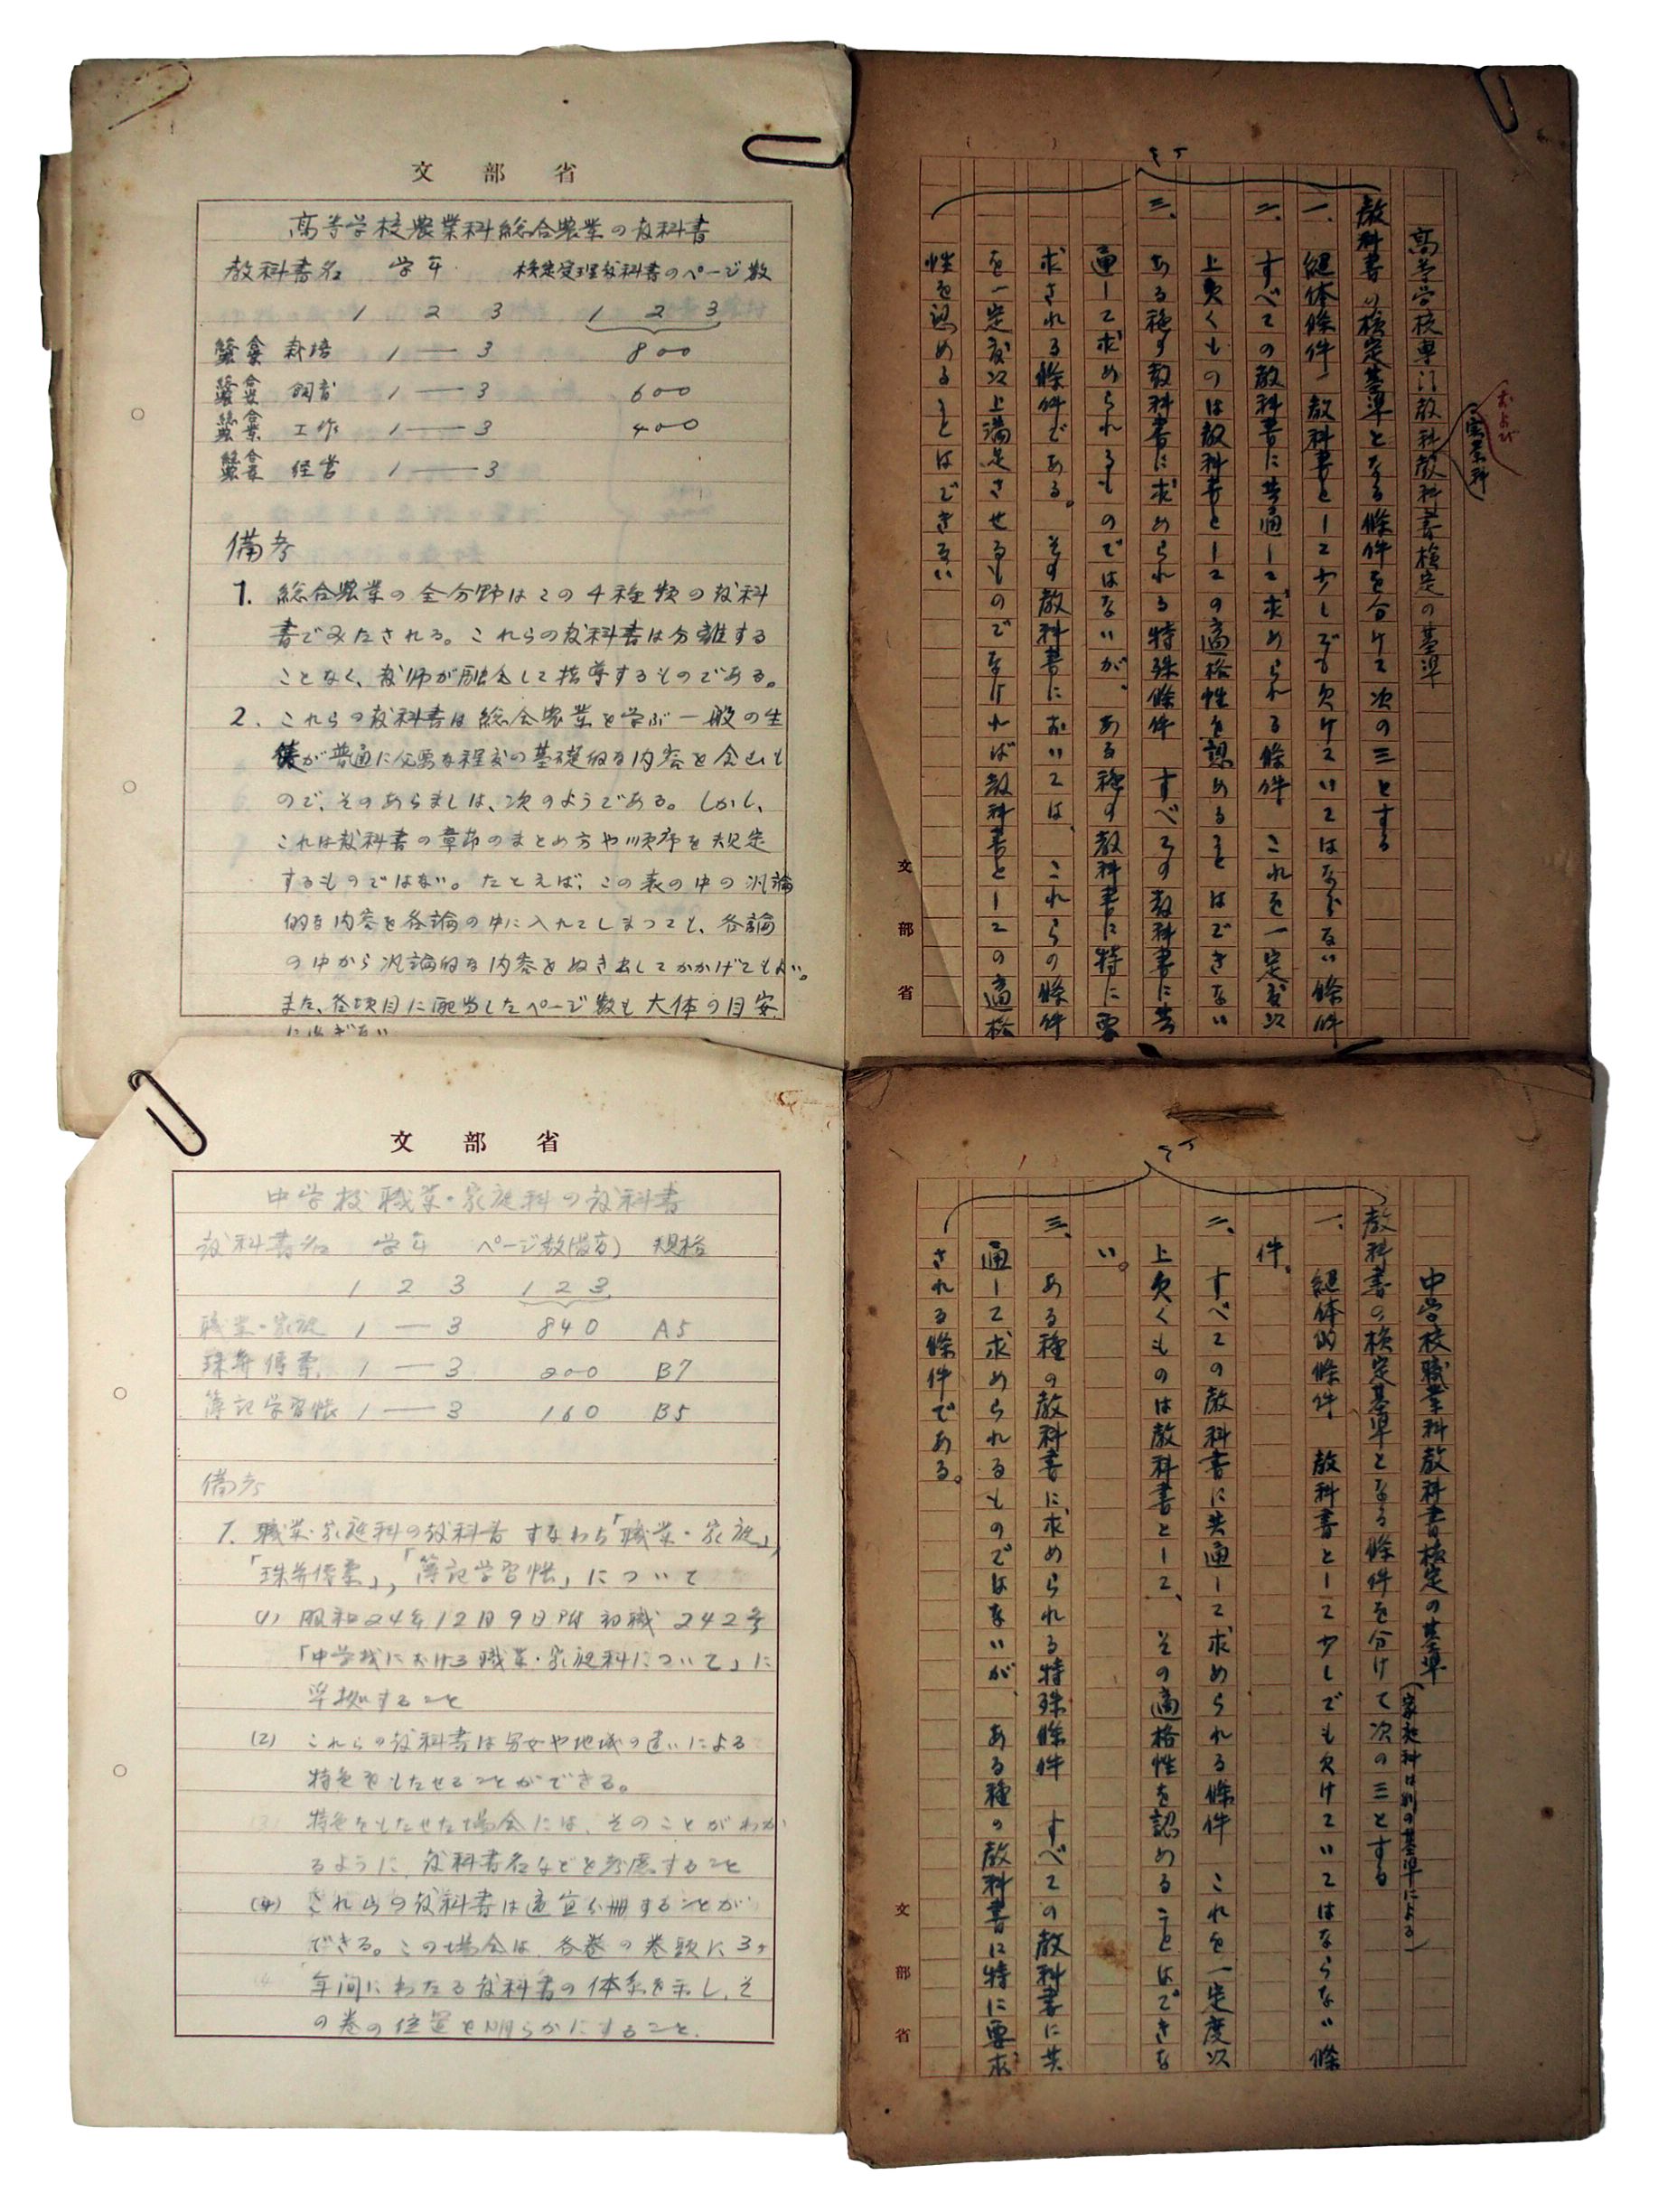 文部省
高等学校農業科総合農業の教科書
教科書名 学年 検定定理教科書のページ数
1 2 3 1 2 3
総合農業 栽培 1 — 3 800
総合農業 飼育 1 — 3 600
総合農業 工作 1 — 3 400
総合農業 経営 1 — 3
備考
1. 総合農業の全分野はこの4種類の教科
書でみたされる。これらの教科書は分離する
ことなく、教師が融合して指導するものである。
2. これらの教科書は総合農業を学ぶ一般の生
徒が普通に必要な程度の基礎的な内容を含むも
ので、そのあらましは、次のようである。しかし、
これは教科書の章節のまとめ方や順序を規定
するものではない。たとえば、この表の中の汎論
的な内容を各論の中に入れてしまつても、各論
の中から汎論的な内容をぬき出してかかげてもよい。
また、各項目に配当したページ数も大体の目安
にすぎない
高等学校専門教科教科書検定の基準
および
実業科
教科書の検定基準となる條件を分けて次の三とする
一、絶体條件 教科書として少しでも欠けていてはならない條件
二、すべての教科書に共通して求められる條件 これを一定度以
上欠くものは教科書としての適格性を認めることはできない
三、ある種の教科書に求められる特殊條件 すべての教科書に共
通して求められるものではないが、ある種の教科書に特に要
求される條件である。その教科書においては、これらの條件
を一定度以上満足させるものでなければ教科書としての適格
性を認めることはできない
文部省
文部省
中学校職業・家庭科の教科書
教科書名 学年 ページ数 規格
1 2 3 1 2 3
職業・家庭 1 — 3 840 A5
珠算傳票 1 — 3 200 B7
簿記学習帳 1 — 3 160 B5
備考
1. 職業・家庭科の教科書すなわち「職業・家庭」,
「珠算傳票」,「簿記学習帳」について
(1) 昭和24年12月9日附初職242号
「中学校における職業・家庭科について」に
準拠すること
(2) これらの教科書は男女や地域の違いによる
特色をもたせることができる。
(3) 特色をもたせた場合には、そのことがわか
るように、教科書名などを考慮すること
(4) これらの教科書は適宜分冊することが
できる。この場合は、各巻の巻頭に3ヶ
年間にわたる教科書の体系を示し、そ
の巻の位置を明らかにすること。
中学校職業科教科書検定の基準(家庭科は別の基準による)
教科書の検定基準となる條件を分けて次の三とする
一、絶体的條件 教科書として少しでも欠けていてはならない條
件。
二、すべての教科書に共通して求められる條件 これを一定度以
上欠くものは教科書として、その適格性を認めることはできな
い。
三、ある種の教科書に求められる特殊條件 すべての教科書に共
通して求められるものではないが、ある種の教科書に特に要求
される條件である。
文部省